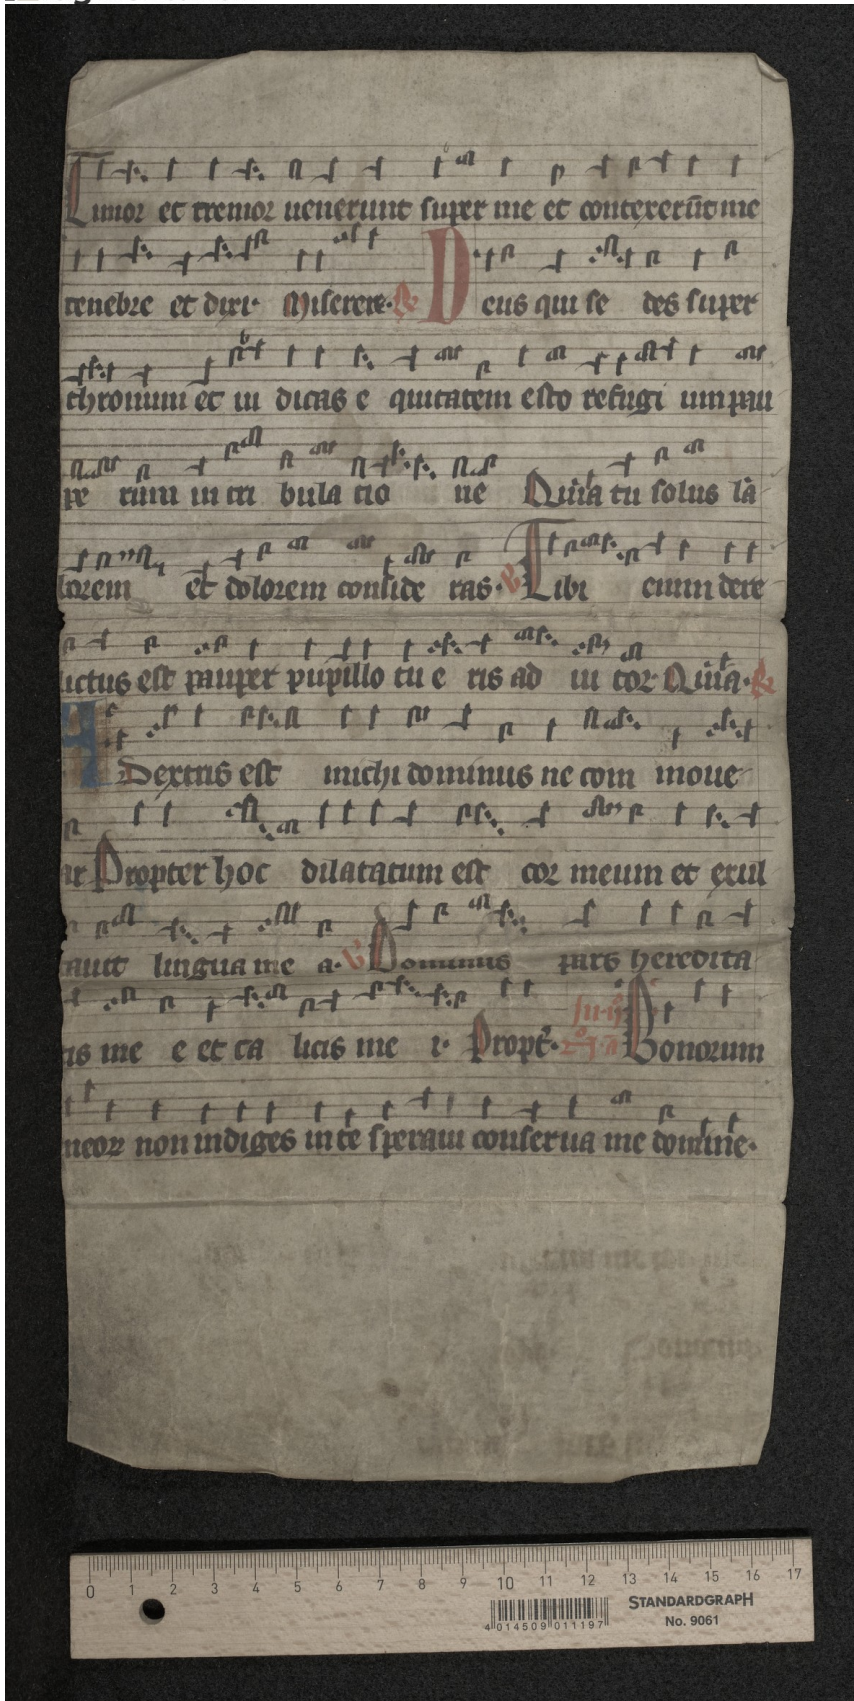 Timor et tremor uenerunt super me et contexerūt me
tenebre et dixi· Miserere· R Deus qui se des super
thronum et iu dicas e quitatem esto refugi um pau
pe rum in tri bula tio ne Quia tu solus la
borem et dolorem conside ras· V Tibi enim dere
lictus est pauper pupillo tu e ris ad iu tor· Quia· R
A Dextris est michi dominus ne com moue
ar Propter hoc dilatatum est cor meum et exul
tauit lingua me a· V Dominus pars heredita
tis me e et ca licis me i· Propt· Bonorum
meorum non indiges in te speraui conserua me domine·
0 1 2 3 4 5 6 7 8 9 10 11 12 13 14 15 16 17
STANDARDGRAPH
No. 9061
4 014509 011197